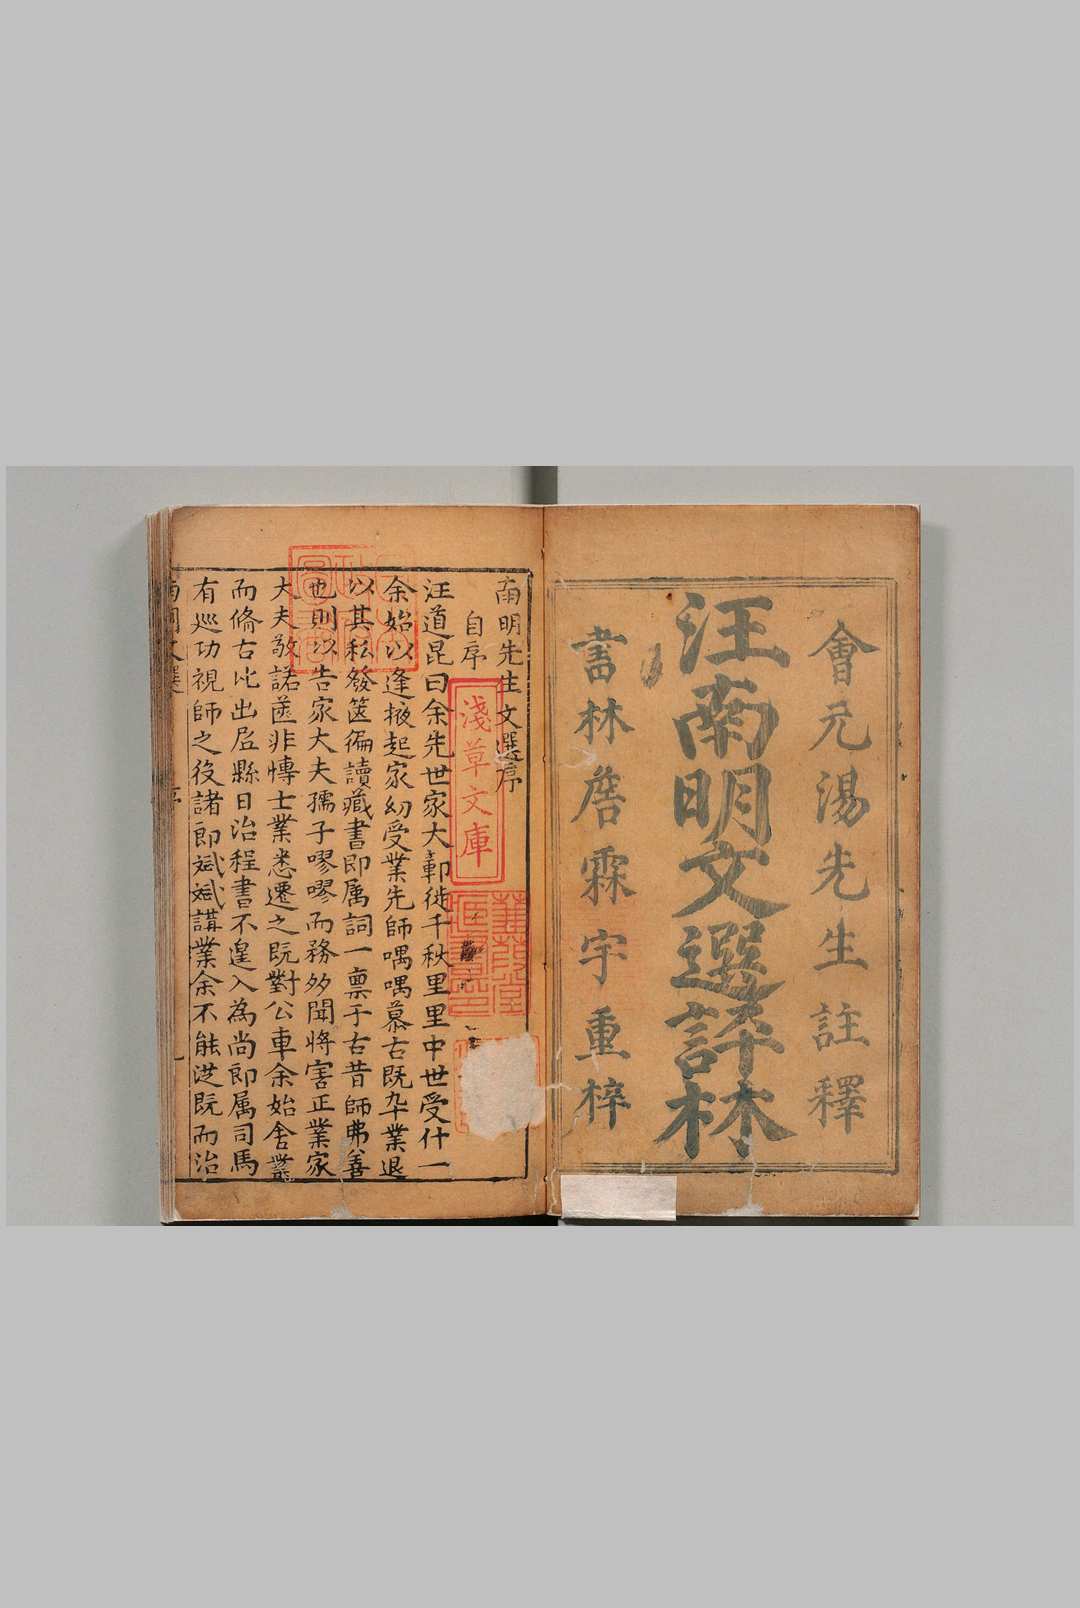 會元湯先生註釋
汪南明文選評林
書林詹霖宇重梓
南明先生文選序
自序
淺草文庫
汪道昆曰余先世家大鄣徙千秋里里中世受什一
余始以逢掖起家幼受業先師喁喁慕古既卒業退
以其私發篋徧讀藏書即属詞一稟于古昔師弗善
也則以告家大夫孺子嘐嘐而務多聞將害正業家
大夫敬諾匧非愽士業悉遷之既對公車余始舍業
而脩古比出宰縣日治程書不遑入為尚郎属司馬
有巡功視師之役諸郎斌斌講業余不能從既而治